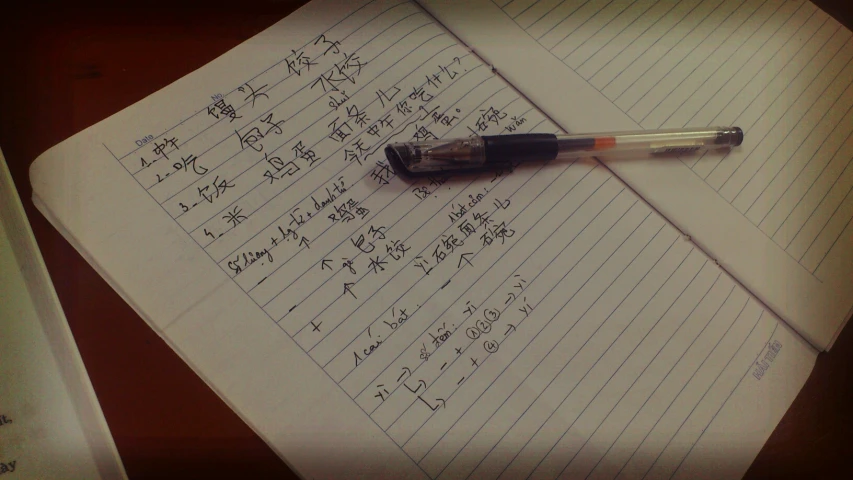 Date No
1. 中午 馒头 饺子
2. 吃 包子 水饺 shuǐ
3. 饭 鸡蛋 面条儿
4. 米 今天中午你吃什么?
我 鸡蛋。
số lượng + lg từ + danh từ
一 个 鸡蛋
一 个 gè 包子
个 水饺
yì 碗面条儿
一个碗
wǎn
1 cái bát
yī → số đếm: yī
一 + ①②③ → yì
一 + ④ → yí